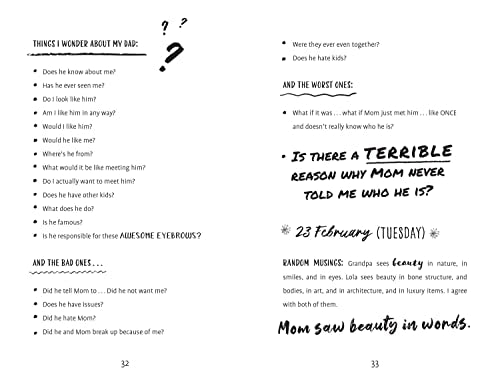 ? ?
?
THINGS I WONDER ABOUT MY DAD:
• Does he know about me?
• Has he ever seen me?
• Do I look like him?
• Am I like him in any way?
• Would I like him?
• Would he like me?
• Where's he from?
• What would it be like meeting him?
• Do I actually want to meet him?
• Does he have other kids?
• What does he do?
• Is he famous?
• Is he responsible for these AWESOME EYEBROWS?
AND THE BAD ONES...
• Did he tell Mom to... Did he not want me?
• Does he have issues?
• Did he hate Mom?
• Did he and Mom break up because of me?
32
• Were they ever even together?
• Does he hate kids?
AND THE WORST ONES:
• What if it was... what if Mom just met him... like ONCE
and doesn't really know who he is?
• IS THERE A TERRIBLE
REASON WHY MOM NEVER
TOLD ME WHO HE IS?
23 February (TUESDAY)
RANDOM MUSINGS: Grandpa sees beauty in nature, in
smiles, and in eyes. Lola sees beauty in bone structure, and
bodies, in art, and in architecture, and in luxury items. I agree
with both of them.
Mom saw beauty in words.
33